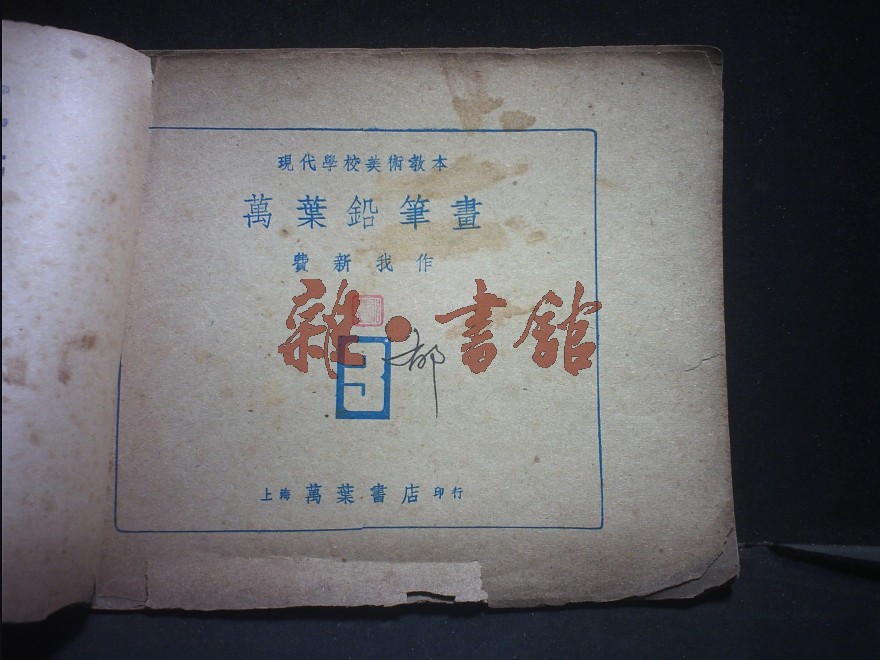 現代學校美術教本
萬葉鉛筆畫
費新我作
雜·書館
3
都
上海 萬葉書店 印行